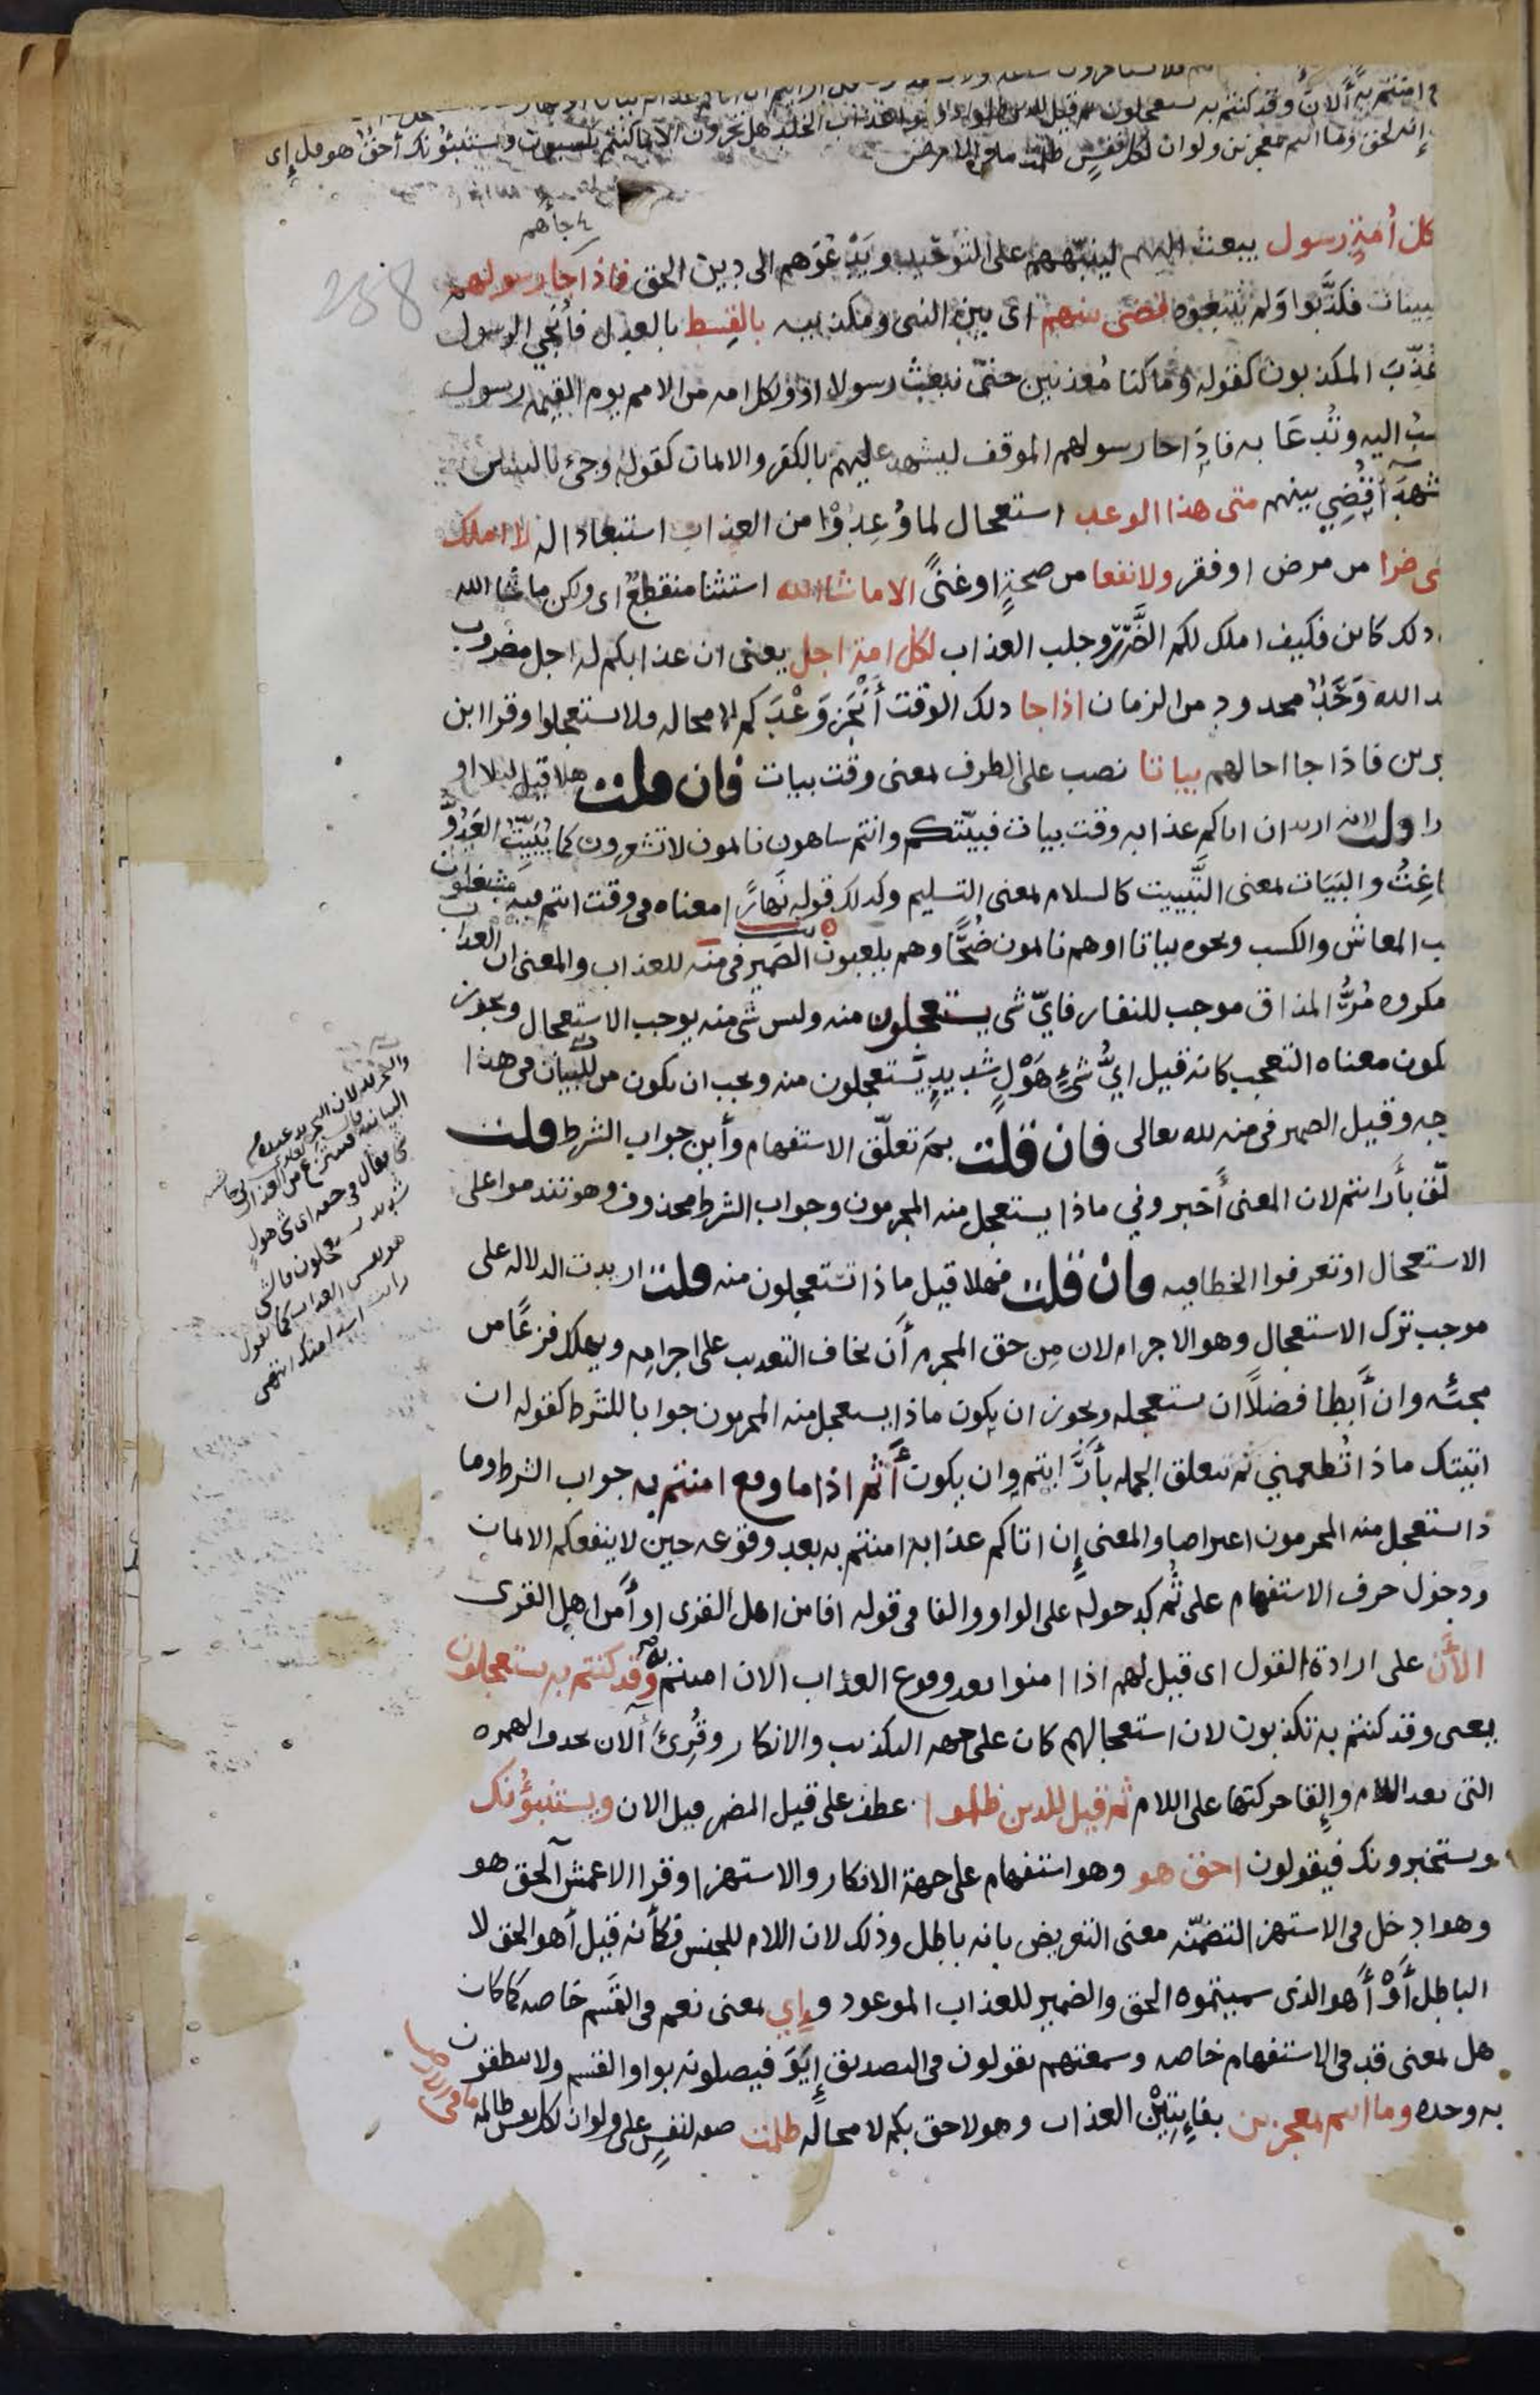 امنتم به آلان وقد كنتم به تستعجلون ثم قيل للذين ظلموا ذوقوا عذاب الخلد هل تجزون الا بما كنتم تكسبون ويستنبؤنك أحق هو قل إي
إنه لحق وما انتم بمعجزين ولو ان لكل نفس ظلمت ما في الارض
238
جاهم
كل أمة رسول يبعث اليهم لينبههم على التوحيد ويدعوهم الى دين الحق فاذا جا رسولهم
بينات فكذبوا ولم يتبعوه قضى بينهم اى بين النبى ومكذبيه بالقسط بالعدل فأنجي الرسول
عذب المكذبون كقوله وما كنا معذبين حتى نبعث رسولا او ولكل امه من الامم يوم القيمه رسول
سب اليه وتدعا به فاذا جا رسولهم الموقف ليشهد عليهم بالكفر والايمان كقوله وجئ بالنبيين
شهدآ قضي بينهم متى هذا الوعد استعجال لما وعدوا من العذاب استبعادا له لا املك
سى ضرا من مرض او فقر ولا نفعا من صحة او غنى الا ما شا الله استثنا منقطع اى ولكن ما شا الله
دلك كاين فكيف املك لكم الضرر وجلب العذاب لكل امة اجل يعنى ان عذابكم له اجل مضروب
ند الله وحد محدود من الزمان اذا جا دلك الوقت أنجز وعدكم لا محاله فلا تستعجلوا وقرا ابن
يرين فاذا جا اجالهم بياتا نصب على الظرف بمعنى وقت بيات فان قلت هلا قيل ليلا او
را قلت لانه اريد ان اتاكم عذابه وقت بيات فبيتكم وانتم ساهون نايمون لا تشعرون كما يبيت العدو
اغت والبيات بمعنى التبييت كالسلام بمعنى التسليم وكدلك قوله نهارا معناه في وقت انتم فيه مشتغلون
ب المعاش والكسب ونحوه بياتا اوهم نايمون ضحا وهم يلعبون الضمير في منه للعذاب والمعنى ان العذاب
مكروه مر المذاق موجب للنفار فاي شى يستعجلون منه وليس شى منه يوجب الاستعجال ويجوز
يكون معناه التعجب كانه قيل اي شئ هول شديد يستعجلون منه ويجب ان يكون من للبيان في هذا
جه وقيل الضمير في منه لله تعالى فان قلت بم تعلق الاستفهام وأين جواب الشرط قلت
لق بأرايتم لان المعنى أخبروني ماذا يستعجل منه المجرمون وجواب الشرط محذوف وهو تندموا على
الاستعجال او تعرفوا الخطا فيه فان قلت فهلا قيل ماذا تستعجلون منه قلت اريدت الدلاله على
موجب ترك الاستعجال وهو الاجرام لان من حق المجرم أن يخاف التعذيب على اجرامه ويهلك فزعا من
مجئه وان أبطا فضلا ان يستعجله ويجوز ان يكون ماذا يستعجل منه المجرمون جوابا للشرط كقوله ان
اتيتك ماذا تطعمني ثم تتعلق الجمله بأرايتم وان يكون أثم اذا ما وقع امنتم به جواب الشرط وما
ذا يستعجل منه المجرمون اعتراضا والمعنى إن اتاكم عذابه امنتم به بعد وقوعه حين لا ينفعكم الايمان
ودخول حرف الاستفهام على ثم كدخوله على الواو والفا في قوله افامن اهل القرى او أمن اهل القرى
الآن على ارادة القول اى قيل لهم اذا امنوا بعد وقوع العذاب الان امنتم به وقد كنتم به تستعجلون
يعنى وقد كنتم به تكذبون لان استعجالهم كان على جهه التكذيب والانكار وقرئ آلان بحذف الهمزه
التى بعد اللام وإلقا حركتها على اللام ثم قيل للذين ظلموا عطف على قيل المضمر قبل الان ويستنبؤنك
ويستخبرونك فيقولون احق هو وهو استفهام على جهة الانكار والاستهزا وقرا الاعمش آلحق هو
وهو ادخل في الاستهزا لتضمنه معنى التعريض بانه باطل وذلك لان اللام للجنس فكأنه قيل أهو الحق لا
الباطل أو أهو الذى سميتموه الحق والضمير للعذاب الموعود وإي بمعنى نعم في القسم خاصه كما كان
هل بمعنى قد في الاستفهام خاصه وسمعتهم يقولون في التصديق إيو فيصلونه بواو القسم ولا ينطقون
به وحده وما انتم بمعجزين بفايتين العذاب وهو لاحق بكم لا محاله ظلمت صفه لنفس على ولو ان لكل نفس ظالمه ما في الارض